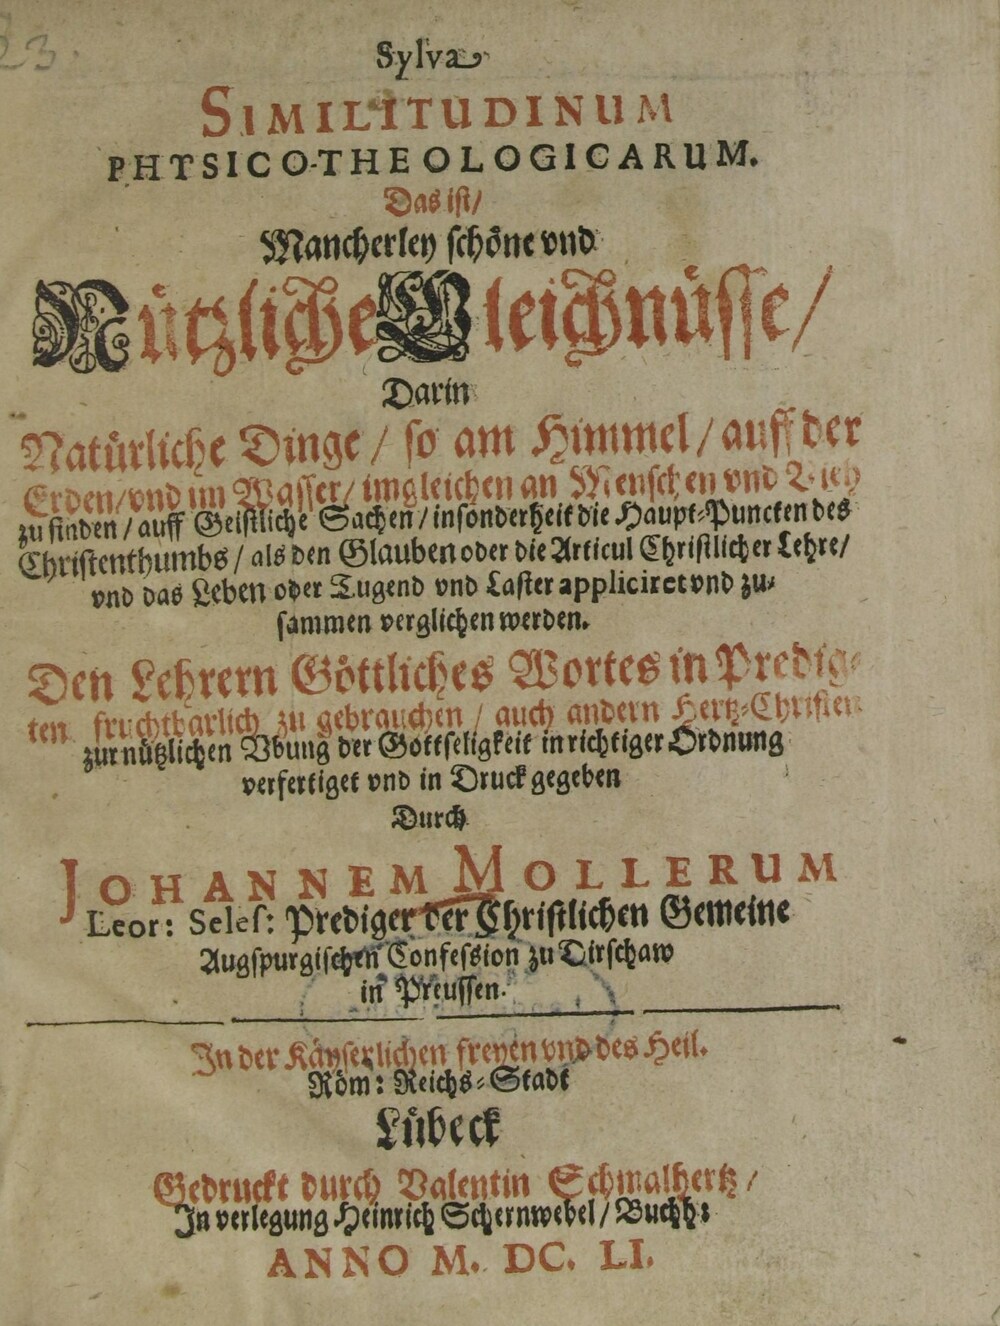 23.
Sylva
SIMILITUDINUM
PHTSICO-THEOLOGICARUM.
Das ist/
Mancherley schöne vnd
Nützliche Gleichnüsse/
Darin
Natürliche Dinge / so am Himmel / auff der
Erden/vnd im Wasser/ imgleichen an Menschen vnd Vieh
zu finden / auff Geistliche Sachen / insonderheit die Haupt-Puncten des
Christenthumbs / als den Glauben oder die Articul Christlicher Lehre/
vnd das Leben oder Tugend vnd Laster appliciret vnd zu-
sammen verglichen werden.
Den Lehrern Göttliches Wortes in Predig-
ten fruchtbarlich zu gebrauchen / auch andern Hertz-Christen
zur nützlichen Vbung der Gottseligkeit in richtiger Ordnung
verfertiget vnd in Druck gegeben
Durch
JOHANNEM MOLLERUM
Leor: Seles: Prediger der Christlichen Gemeine
Augspurgischen Confession zu Dirschaw
in Preussen.
In der Käyserlichen freyen vnd des Heil.
Röm: Reichs-Stadt
Lübeck
Gedruckt durch Valentin Schmalhertz /
In verlegung Heinrich Schernwebel / Buchh:
ANNO M. DC. LI.